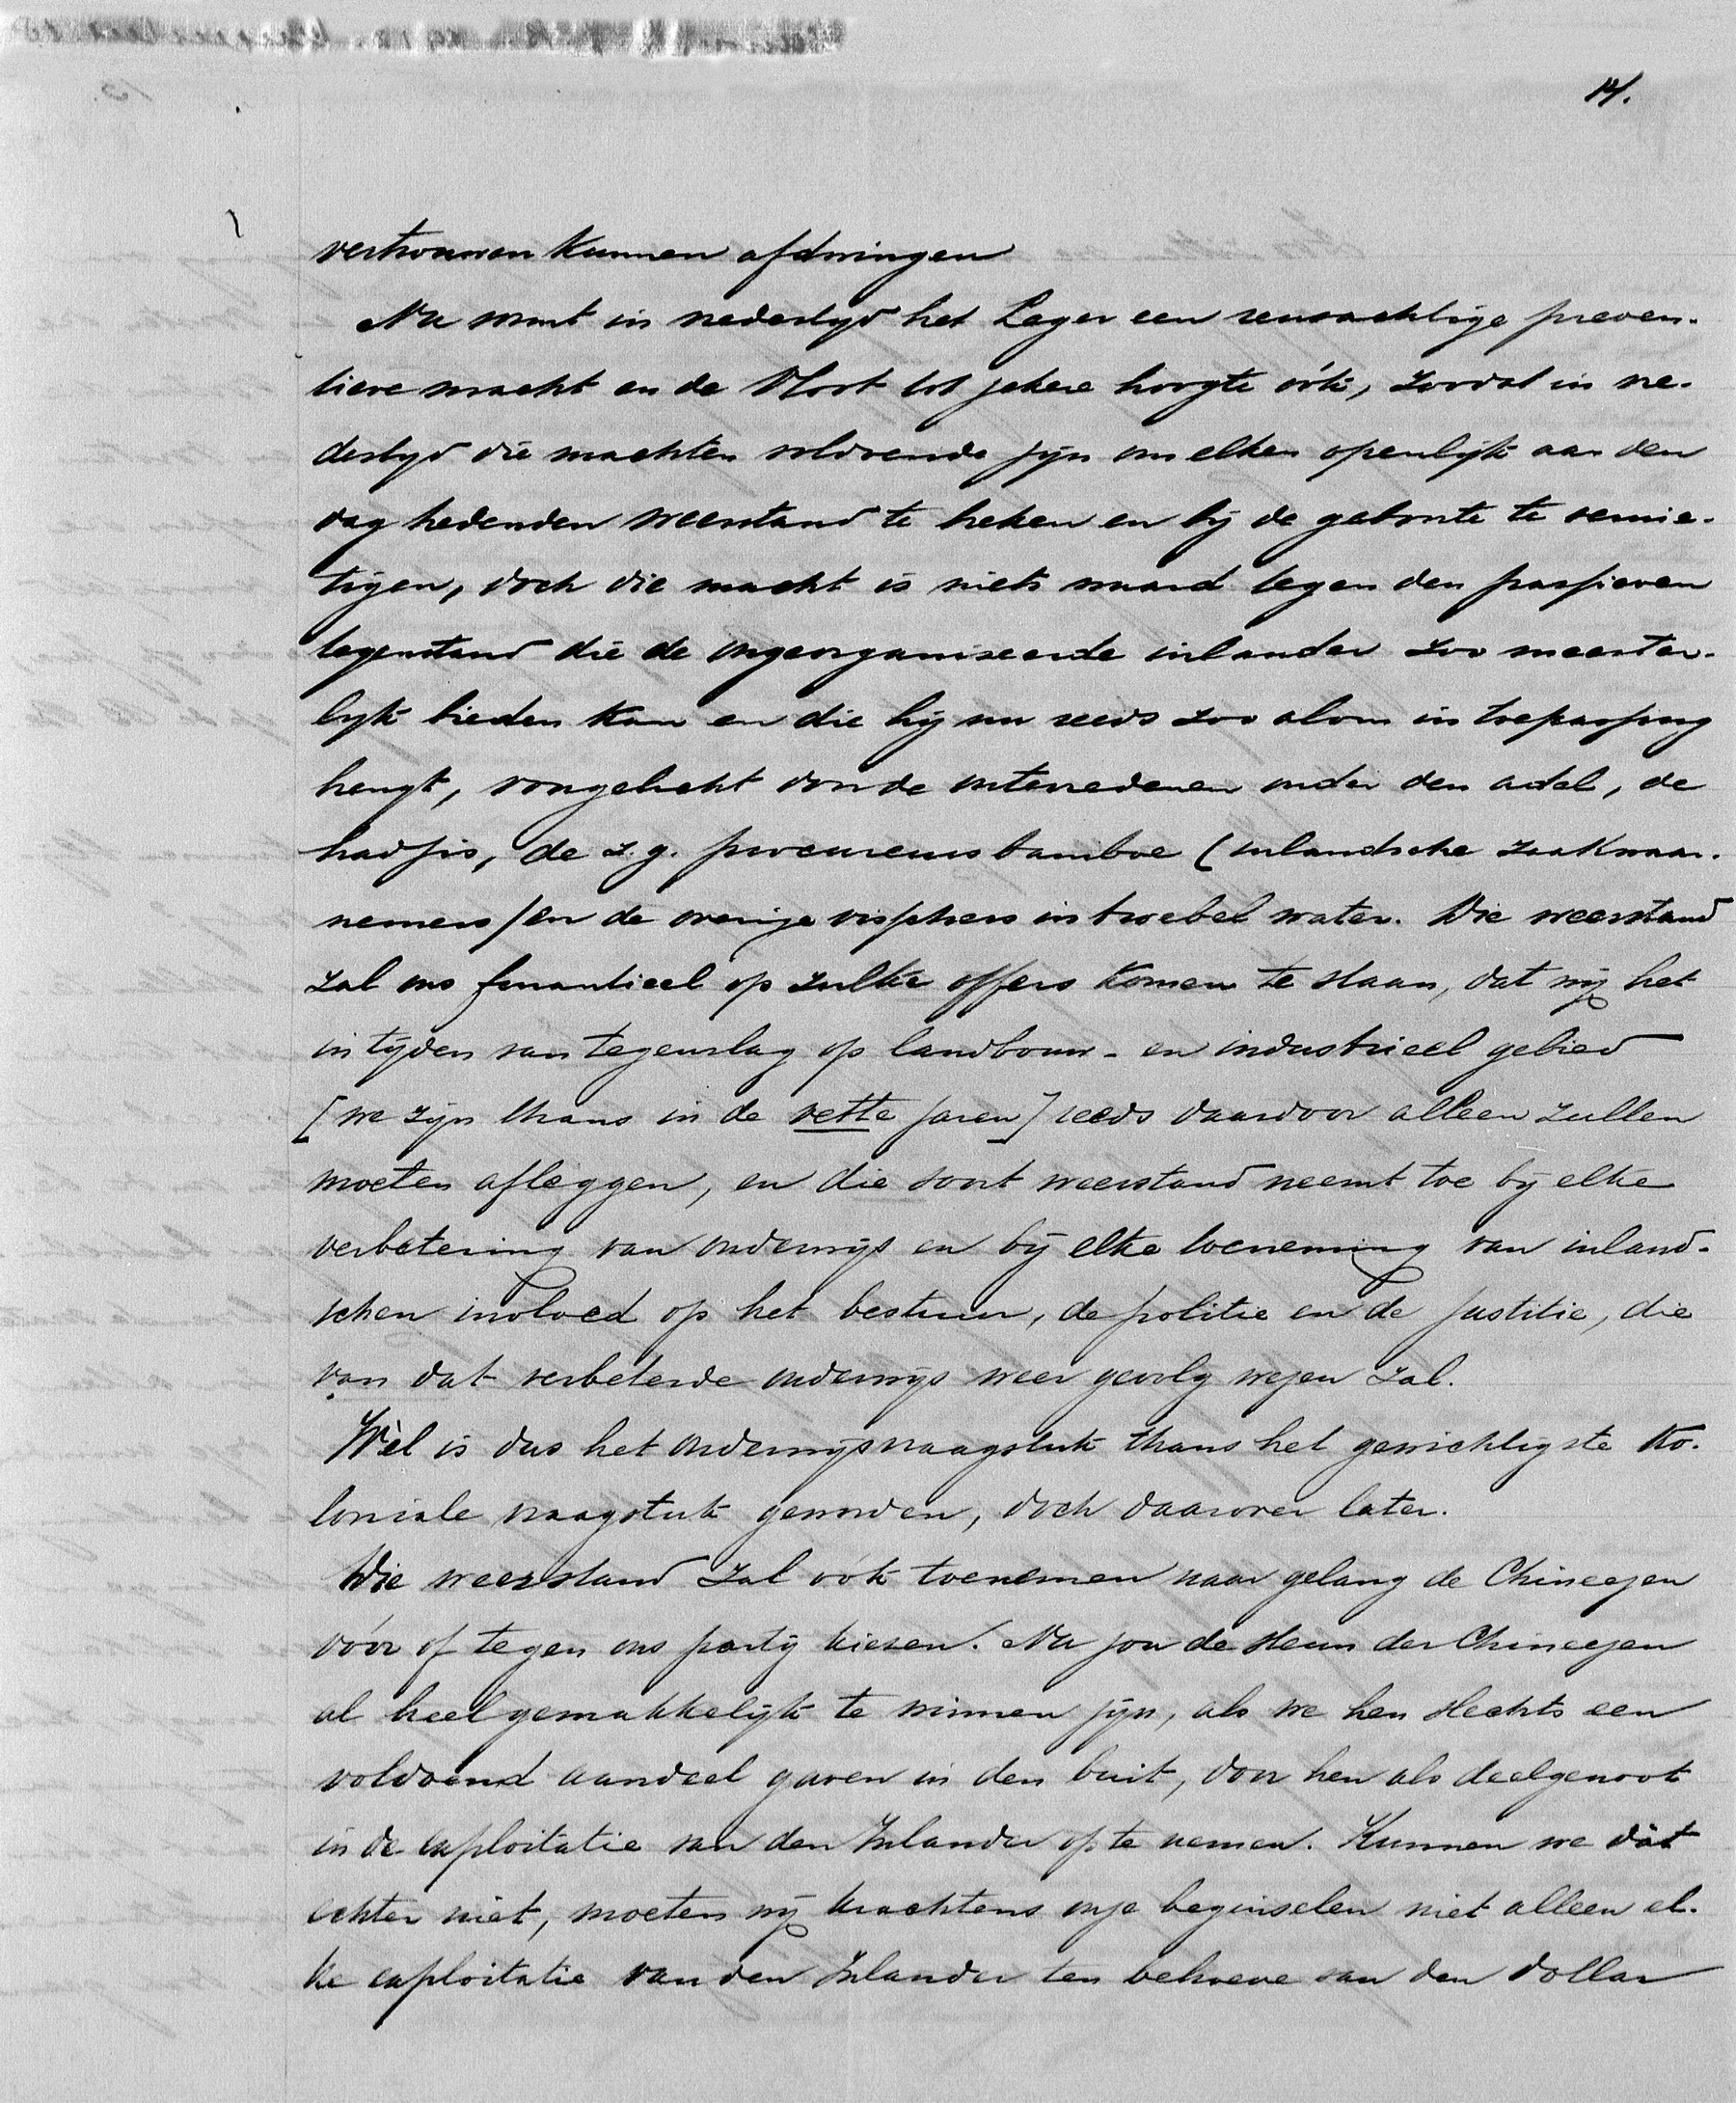 14.
vertrouwen kunnen afdwingen
Nu vormt in vredestijd het Leger een reusachtige preven-
tieve macht en de Vloot tot zekere hoogte óók, zoodat in vre-
destijd die machten voldoende zijn om elken openlijk aan den
dag tredenden weerstand te breken en bij de geboorte te vernie-
tigen, doch die macht is niets waard tegen den passieven
tegenstand die de ongeorganiseerde inlander zoo meester-
lijk bieden kan en die hij nu reeds zoo alom in toepassing
brengt, voorgelicht door de ontevredenen onder den adel, de
hadjis, de z.g. procureurs bamboe (inlandsche zaakwaar-
nemers) en de overige visschers in troebel water. Die weerstand
zal ons financieel op zulke offers komen te staan, dat wij het
in tijden van tegenslag op landbouw- en industrieel gebied
[we zijn thans in de vette jaren] reeds daardoor alleen zullen
moeten afleggen, en die soort weerstand neemt toe bij elke
verbetering van onderwijs en bij elke toeneming van inland-
schen invloed op het bestuur, de politie en de justitie, die
van dat verbeterde onderwijs weer gevolg wezen zal.
Wèl is dus het onderwijsvraagstuk thans het gewichtigste ko-
loniale vraagstuk geworden, doch daarover later.
Die weerstand zal óók toenemen naar gelang de Chineezen
vóór of tegen ons partij kiezen. Nu zou de steun der Chineezen
al heel gemakkelijk te winnen zijn, als we hen slechts een
voldoend aandeel gaven in den buit, door hen als deelgenoot
in de exploitatie van den Inlander op te nemen. Kunnen we dàt
echter niet, moeten wij krachtens onze beginselen niet alleen el-
ke exploitatie van den Inlander ten behoeve van den dollar